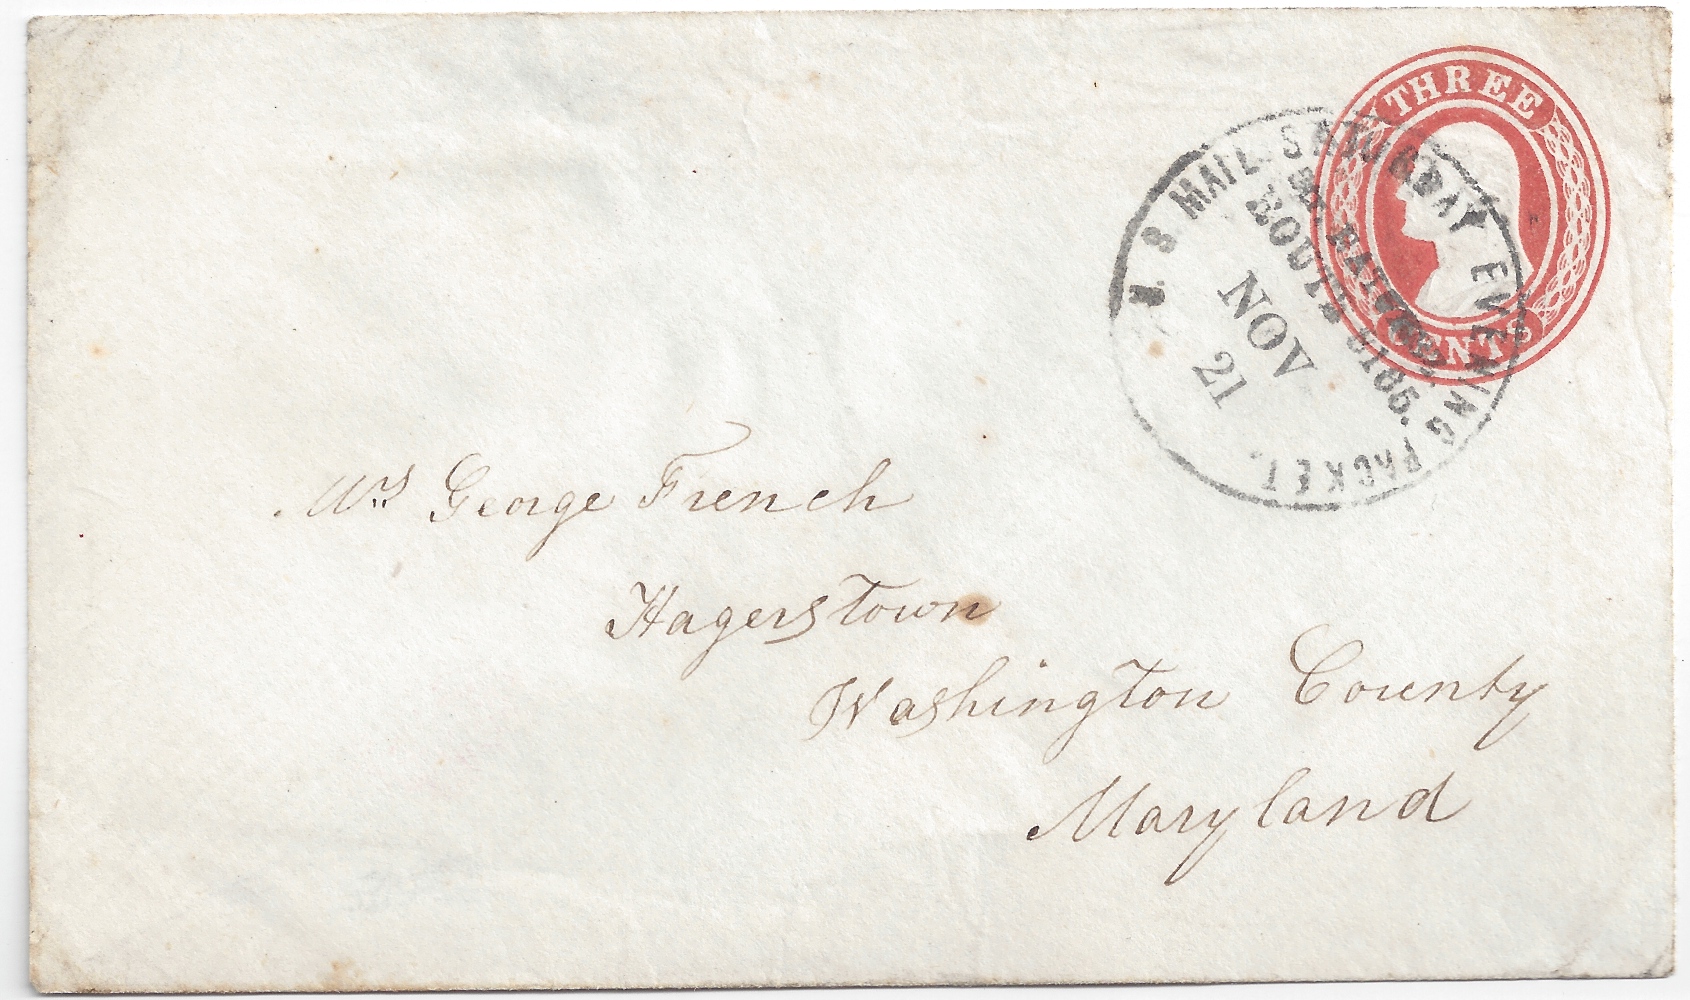 THREE
CENTS
U. S. MAIL. SATURDAY EVENING PACKET.
ROUTE 5105.
NOV
21
Mrs George French
Hagerstown
Washington County
Maryland